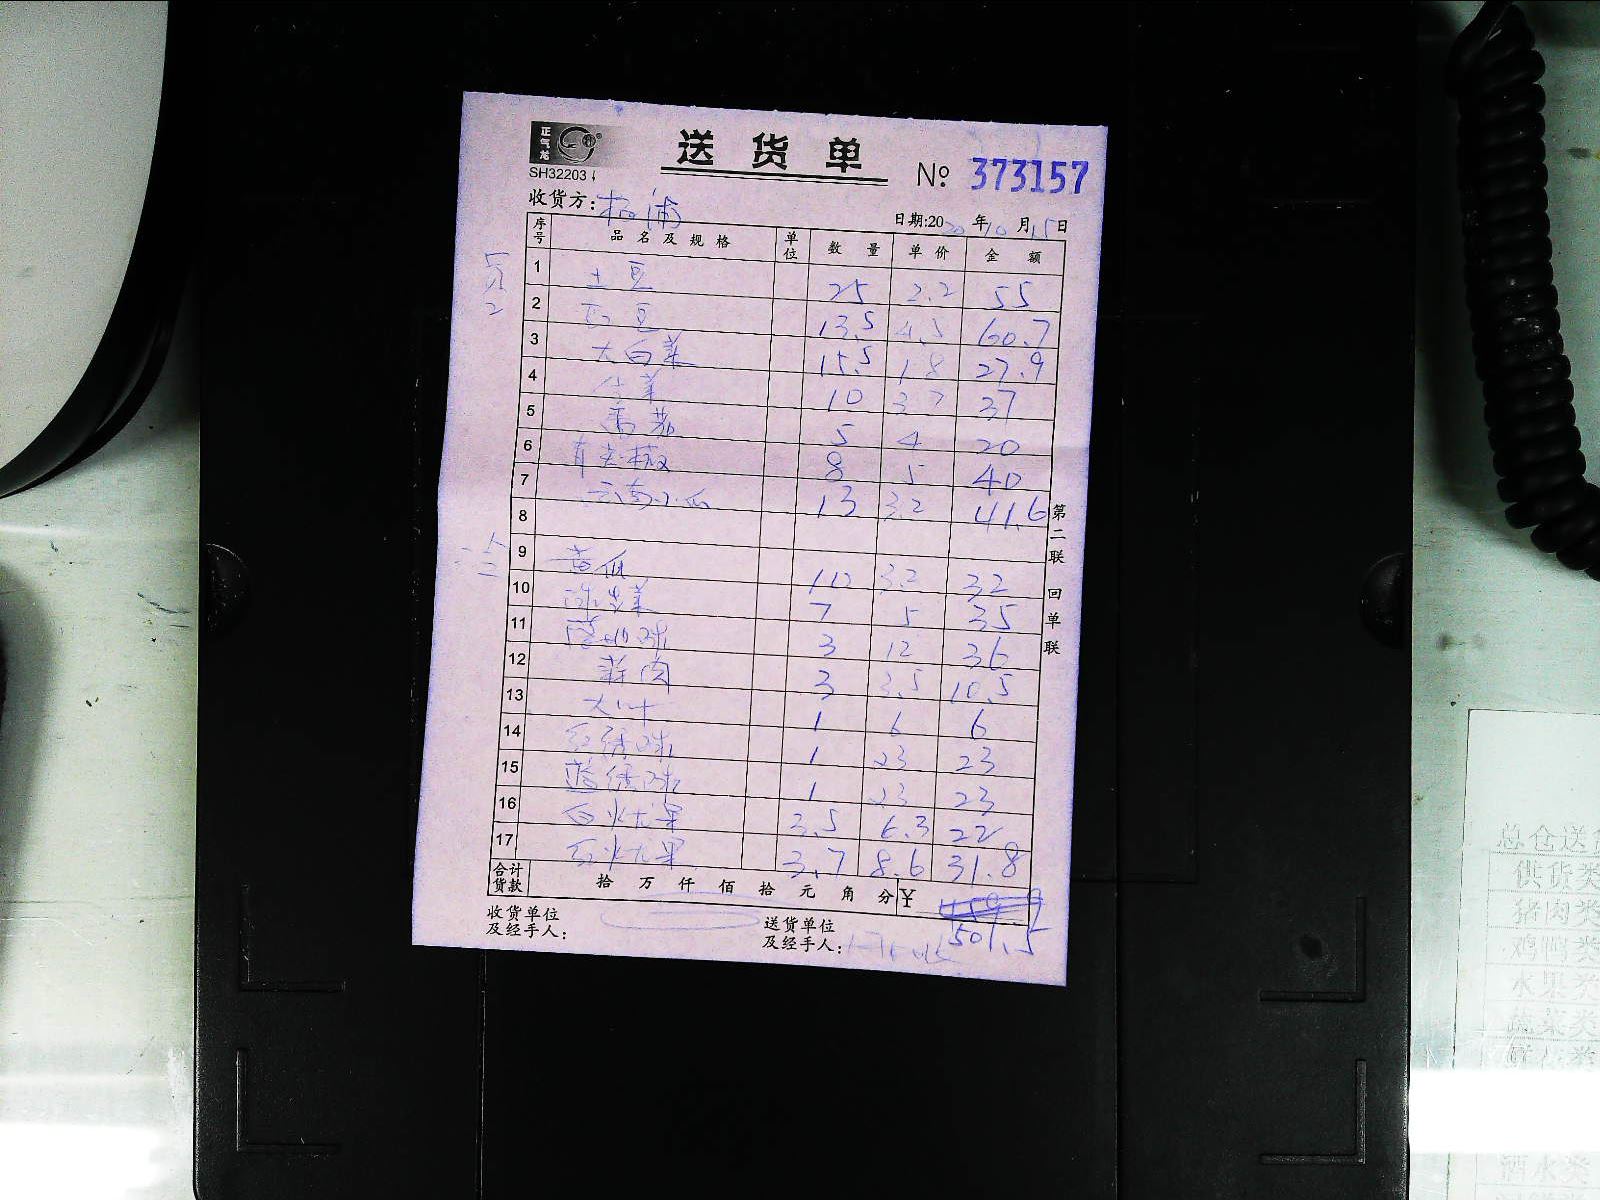 正气龙
送货单
№ 373157
SH32203
收货方: 杨浦
日期:2020年10月15日
序号 品名及规格 单位 数量 单价 金额
1 土豆 25 2.2 55
2 豆 13.5 4.5 60.7
3 大白菜 15.5 1.8 27.9
4 生菜 10 3.7 37
5 番茄 5 4 20
6 青尖椒 8 5 40
7 云南小瓜 13 3.2 41.6
8
9 黄瓜 10 3.2 32
10 球生菜 7 5 35
11 3 12 36
12 蒜肉 3 3.5 10.5
13 大叶 1 6 6
14 红绣球 1 23 23
15 蓝绣球 1 23 23
16 白火龙果 3.5 6.3 22
17 红火龙果 3.7 8.6 31.8
合计货款 拾 万 仟 佰 拾 元 角 分 ¥
501.5
收货单位及经手人:
送货单位及经手人:
第二联 回单联
总仓送
供货类
猪肉类
鸡鸭类
水果类
蔬菜类
酒水类